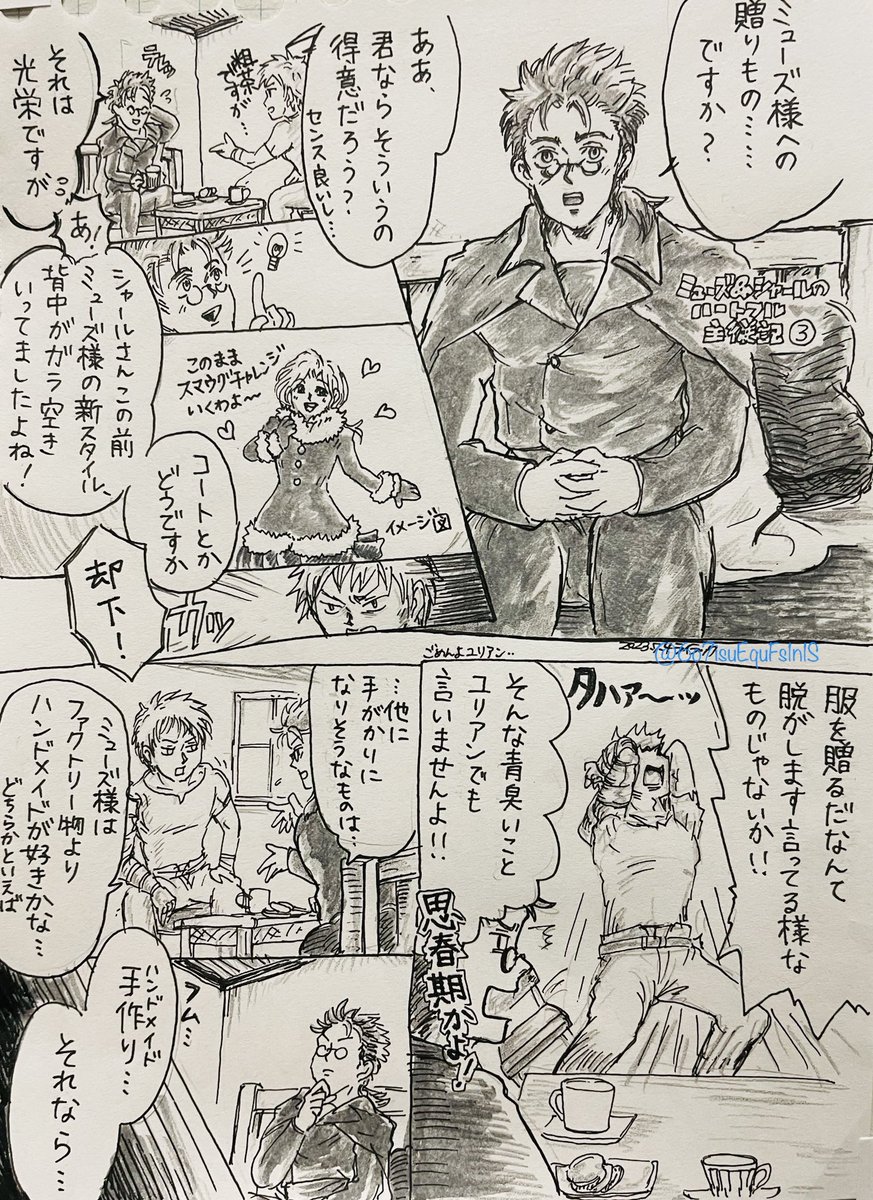 ミューズ様への
贈りもの……
ですか?
ミューズ&シャールの
ハートフル
主従記③
ああ、
君ならそういうの
得意だろう?
センス良いし…
粗茶
ですが…
それは
光栄ですが
…
あ!
シャールさんこの前
ミューズ様の新スタイル、
背中がガラ空き
いってましたよね!
このまま
スマウグチャレンジ
いくわよ〜
イメージ図
コートとか
どうですか
カッ
却下!
ごめんよユリアン‥
服を贈るだなんて
脱がします言ってる様な
ものじゃないか!!
タハァ〜ッ
そんな青臭いこと
ユリアンでも
言いませんよ!!
思春期かよ!!
…他に
手がかりに
なりそうなものは…
ミューズ様は
ファクトリー物より
ハンドメイドが好きかな…
どちらかといえば
フム…
ハンドメイド
手作り…
それなら…